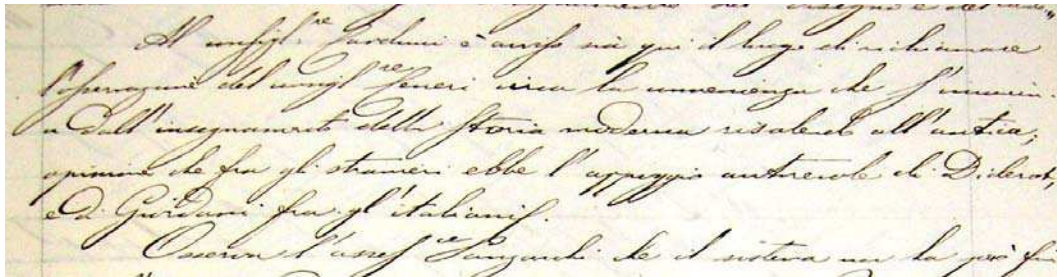 del disegno e
Al consigl.re Carducci è avviso sia qui il luogo di richiamare
l'osservazione del consigl.re Ceneri circa la convenienza che s'incomin-
ci dall'insegnamento della Storia moderna risalendo all'antica;
opinione che fra gli stranieri ebbe l'appoggio autorevole di Diderot,
e di Giordani fra gl'italiani.
Osserva l'assess.re che il sistema non ha però